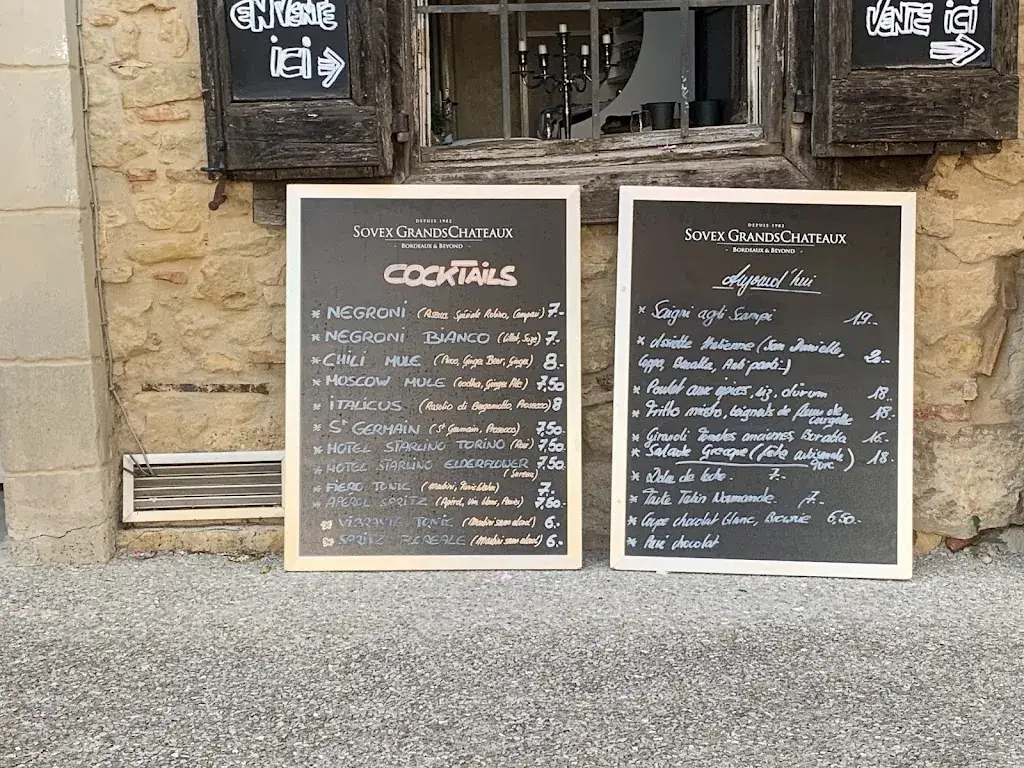 EN VENTE
ICI
VENTE ICI
DEPUIS 1982
SOVEX GRANDSCHATEAUX
BORDEAUX & BEYOND
COCKTAILS
* NEGRONI Campari) 7.-
* NEGRONI BIANCO (Lillet, Suze) 7.-
* CHILI MULE Ginger Beer, Ginger) 8.-
* MOSCOW MULE (Vodka, Ginger Ale) 7,50
* ITALICUS (Rosolio di Bergamotto, Prosecco) 8
* ST GERMAIN (St Germain, Prosecco) 7,50
* HOTEL STARLINO TORINO 7,50
* HOTEL STARLINO ELDERFLOWER 7,50
* FIERO TONIC 7.-
* APEROL SPRITZ 7,50
VIBRANTE TONIC (Martini sans alcool) 6.-
SPRITZ FLOREALE (Martini sans alcool) 6.-
DEPUIS 1982
SOVEX GRANDSCHATEAUX
BORDEAUX & BEYOND
Aujourd'hui
* agli Scampi 19.-
* Assiette Italienne (San Danielle,
Coppa, Burrata, Anti pasti..)
* Poulet aux épices, riz, 18.-
* Fritto misto, beignets de fleurs de
courgette 18.-
* Girasoli tomates anciennes Burrata 16.-
* Salade Grecque (feta artisanale
) 18.
* 7.-
* Tarte Tatin Normande 7.-
* Coupe chocolat blanc, Brownie 6,50.-
* chocolat